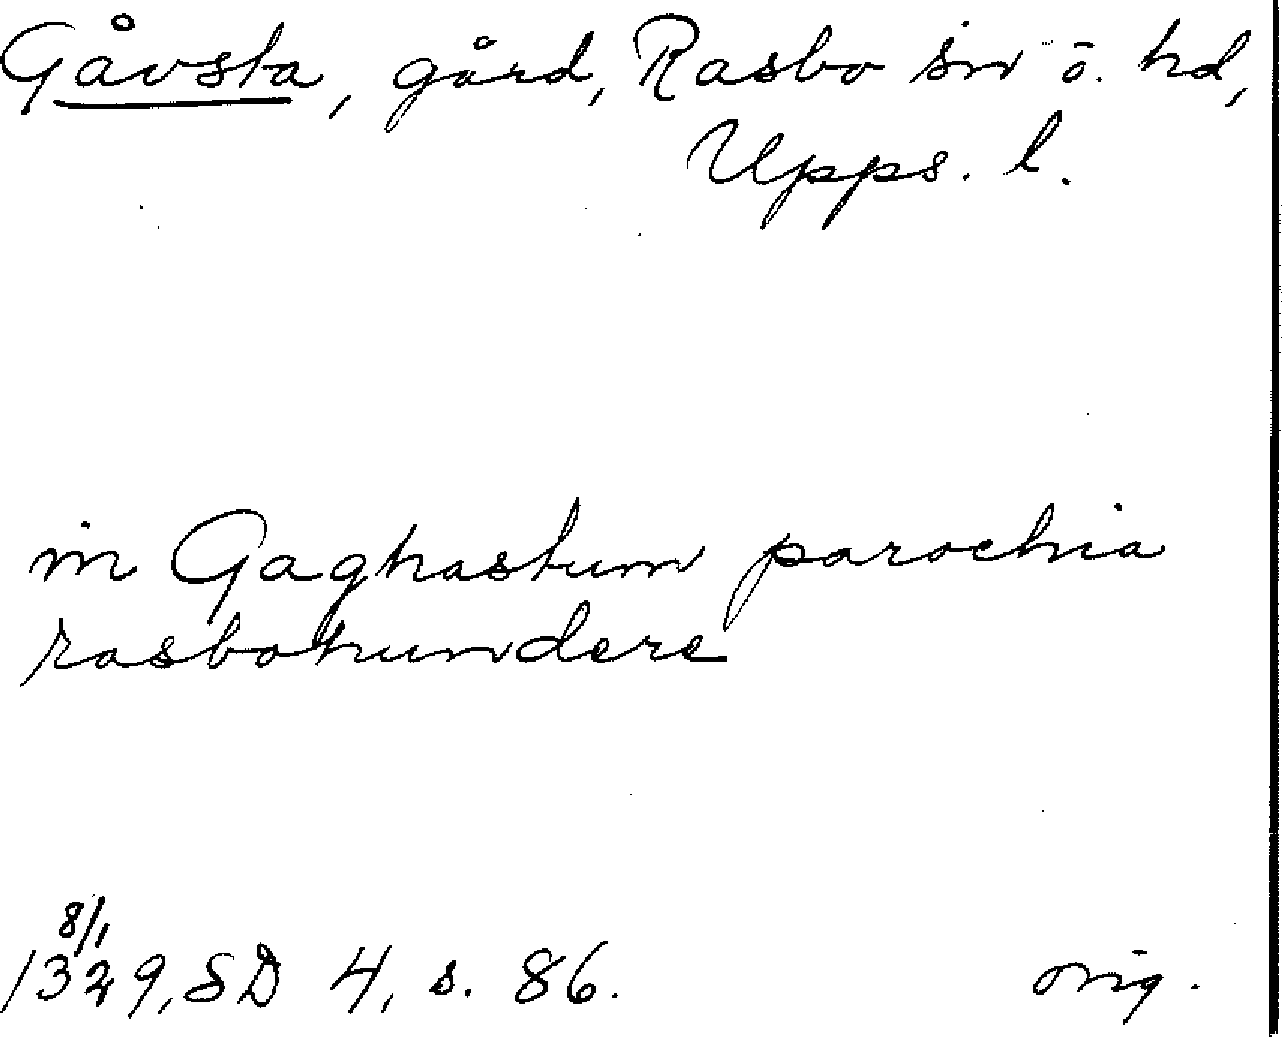 Gåvsta, gård, Rasbo sn o. hd,
Upps. l.
in Gaghastum parochia
rasbohundere
8/1
1329, SD 4, s. 86. orig.